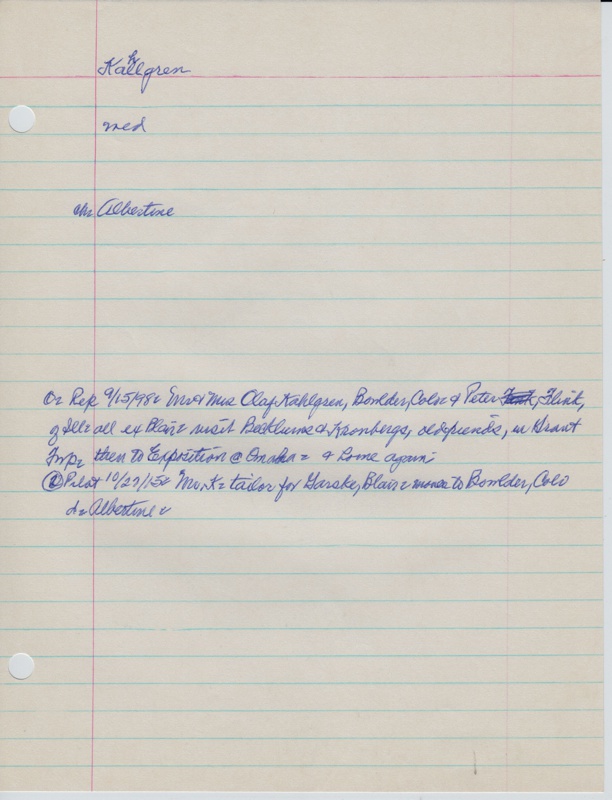 Kahlgren
med
ch: Albertine
Or Rep 9/15/98: Mr & Mrs Olaf Kahlgren, Boulder, Colo: & Peter Flink,
of Ill: all ex Blair: visit Becklunds & Kronbergs, old friends, in Grant
Twp: then to Exposition @ Omaha: & home again:
Pilot 10/27/15: Mr. K: tailor for Garske, Blair: moves to Boulder, Colo
d: Albertine: